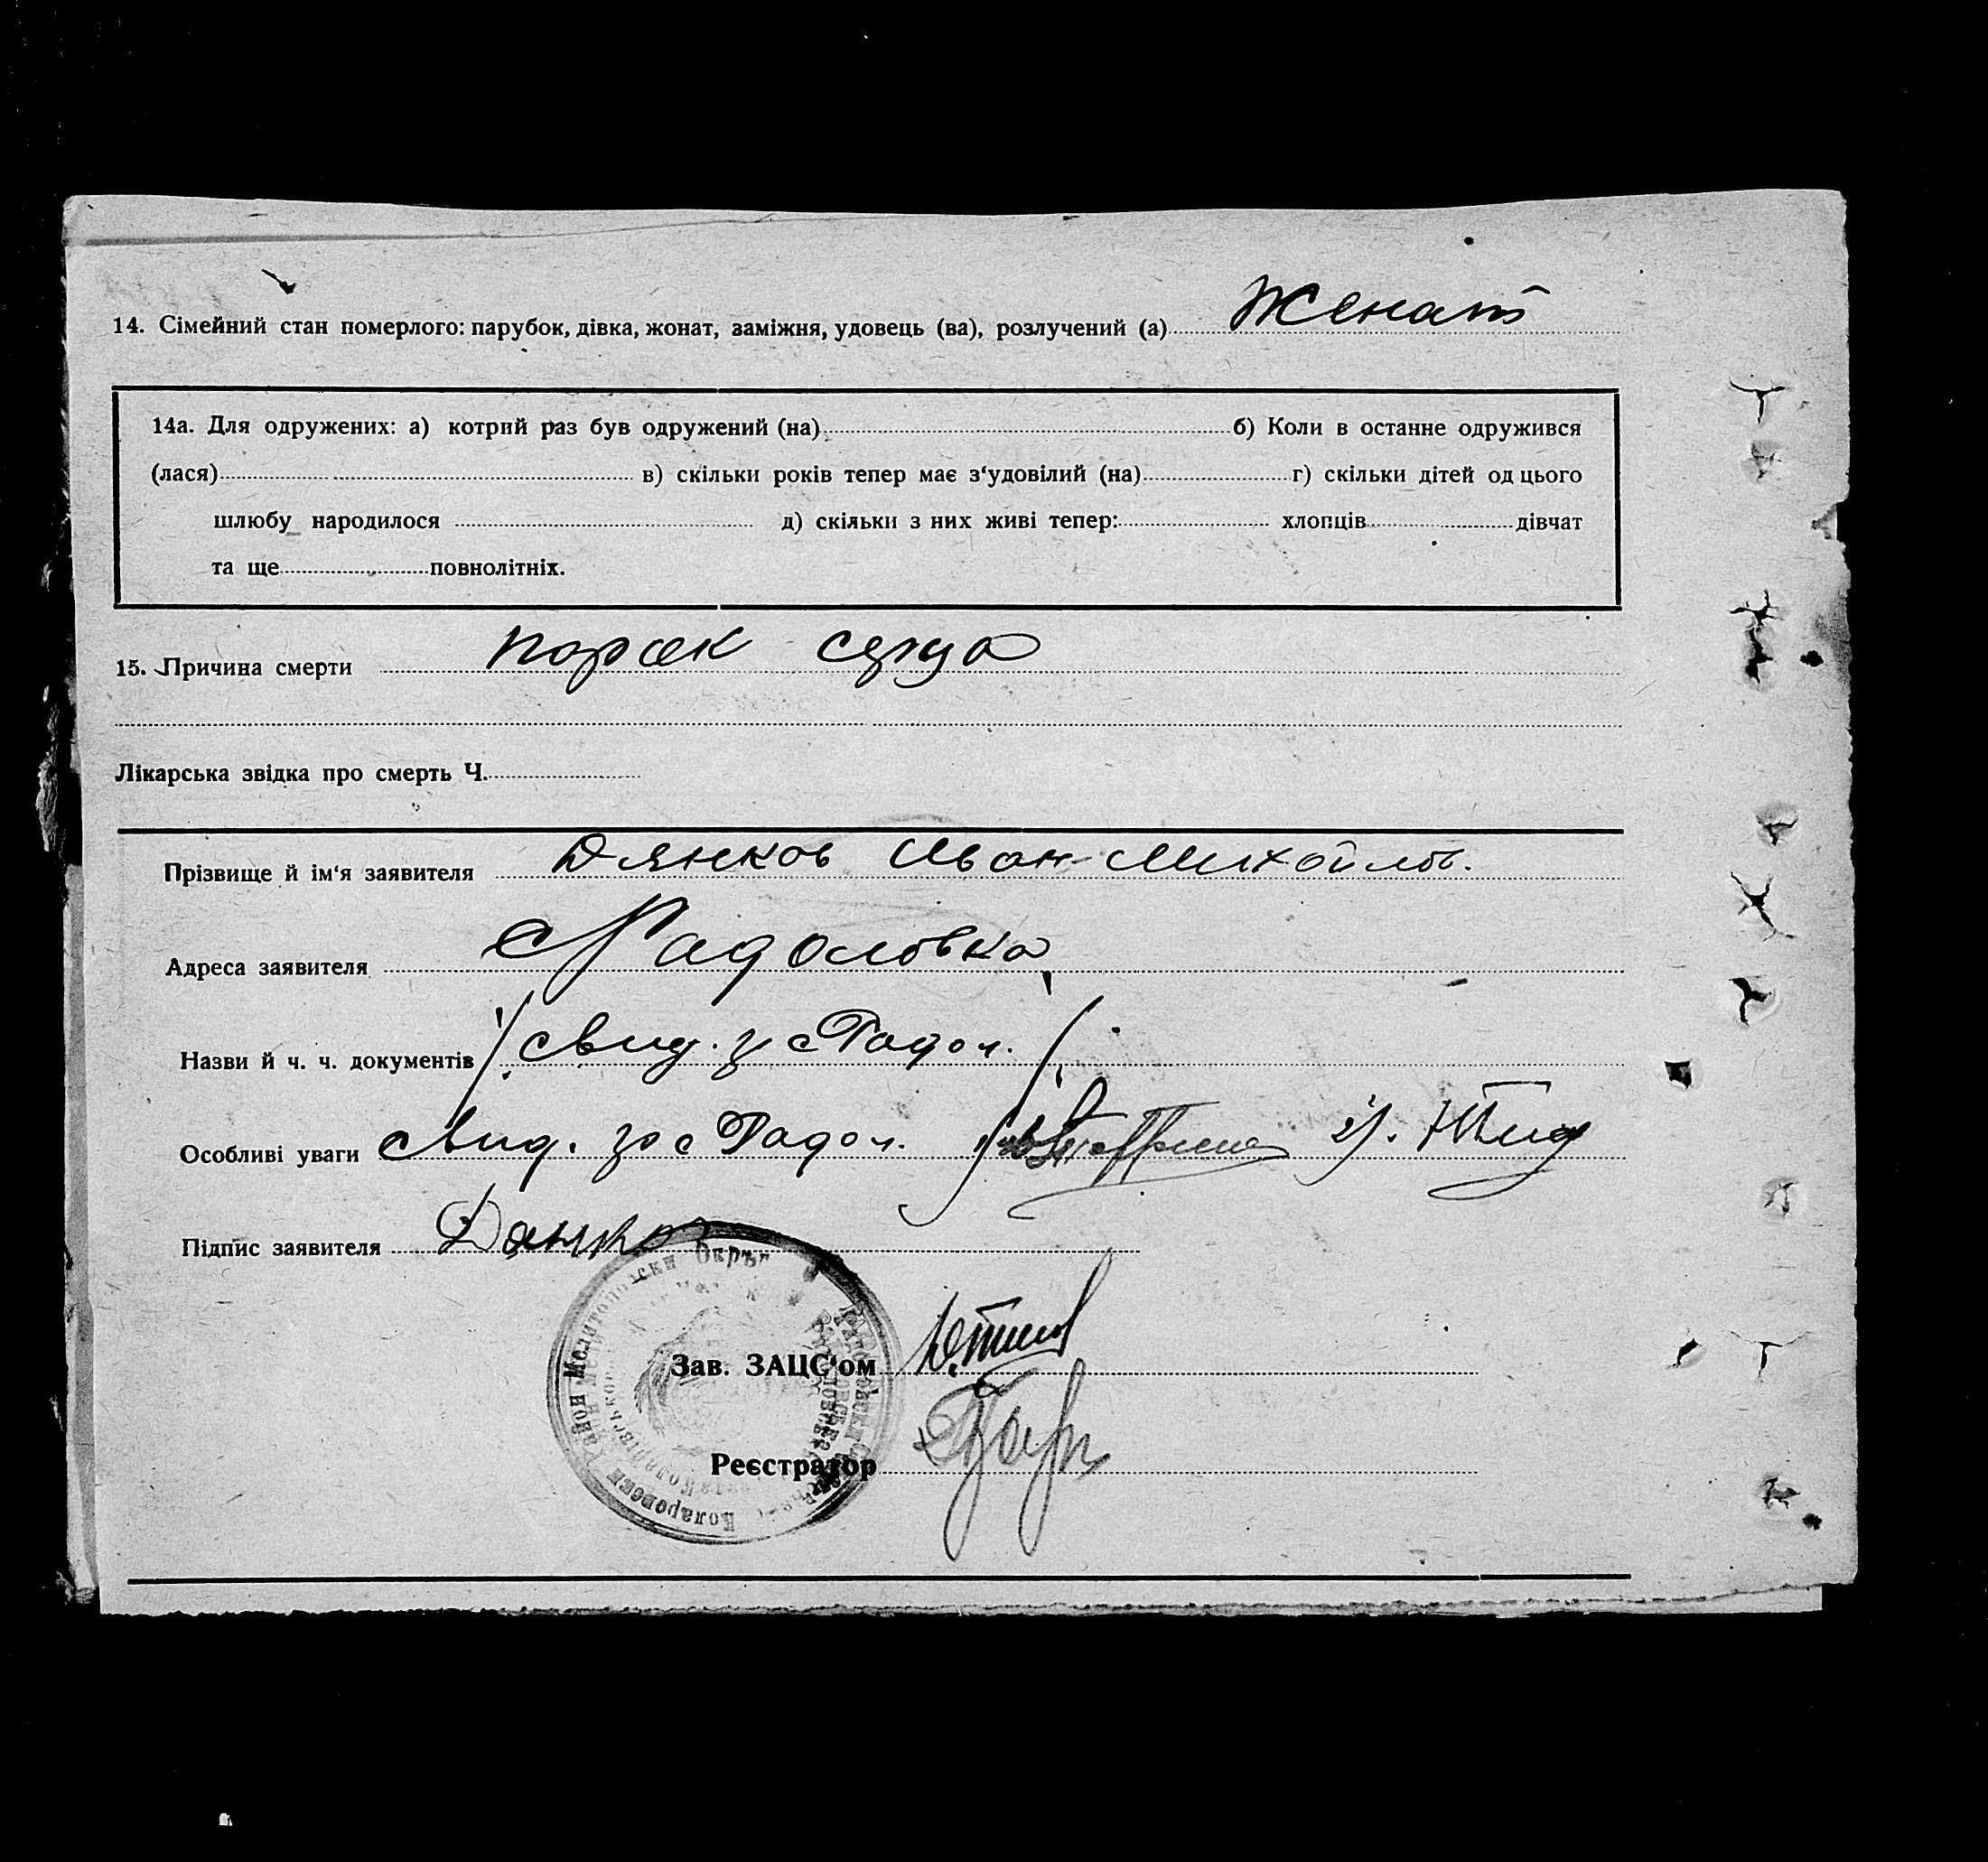 14. Сімейний стан померлого: парубок, дівка, жонат, заміжня, удовець (ва), розлучений (а) Женат
14а. Для одружених: а) котрий раз був одружений (на) б) Коли в останне одружився
(лася) в) скільки років тепер має з'удовілий (на) г) скільки дітей од цього
шлюбу народилося д) скільки з них живі тепер: хлопців дівчат
та ще повнолітніх.
15. Причина смерти порок серца
Лікарська звідка про смерть Ч.
Прізвище й ім'я заявителя Дянков Иван Михойлов.
Адреса заявителя с Радоловка
Назви й ч. ч. документів свид. с Радол.
Особливі уваги свид. с Радол.
Підпис заявителя Данко
Мелитополски Окръг
Коларовски Район
Зав. ЗАЦС'ом
Реєстратор